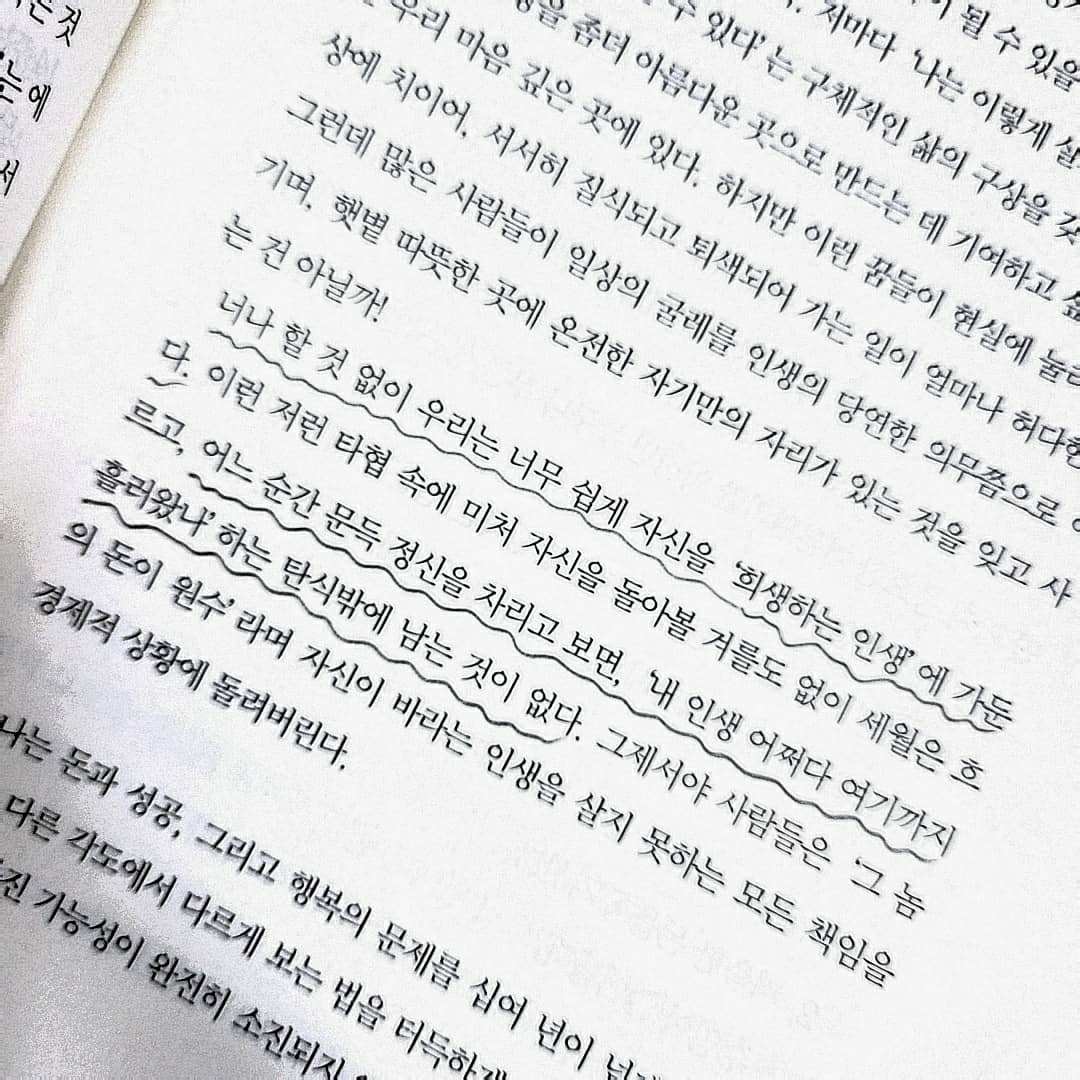 는 것
는에
서
될 수 있을
저마다 '나는 이렇게 살
수 있다'는 구체적인 삶의 구상을 갖
을 좀더 아름다운 곳으로 만드는 데 기여하고 싶
우리 마음 깊은 곳에 있다. 하지만 이런 꿈들이 현실에 눌리
상에 치이어, 서서히 질식되고 퇴색되어 가는 일이 얼마나 허다한
그런데 많은 사람들이 일상의 굴레를 인생의 당연한 의무쯤으로
기며, 햇볕 따뜻한 곳에 온전한 자기만의 자리가 있는 것을 잊고 사
는 건 아닐까!
너나 할 것 없이 우리는 너무 쉽게 자신을 '희생하는 인생'에 가둔
다. 이런 저런 타협 속에 미처 자신을 돌아볼 겨를도 없이 세월은 흐
르고, 어느 순간 문득 정신을 차리고 보면, '내 인생 어쩌다 여기까지
흘러왔나' 하는 탄식밖에 남는 것이 없다. 그제서야 사람들은 '그 놈
의 돈이 원수'라며 자신이 바라는 인생을 살지 못하는 모든 책임을
경제적 상황에 돌려버린다.
나는 돈과 성공, 그리고 행복의 문제를 십여 년이
다른 각도에서 다르게 보는 법을 터득하게
진 가능성이 완전히 소진되지